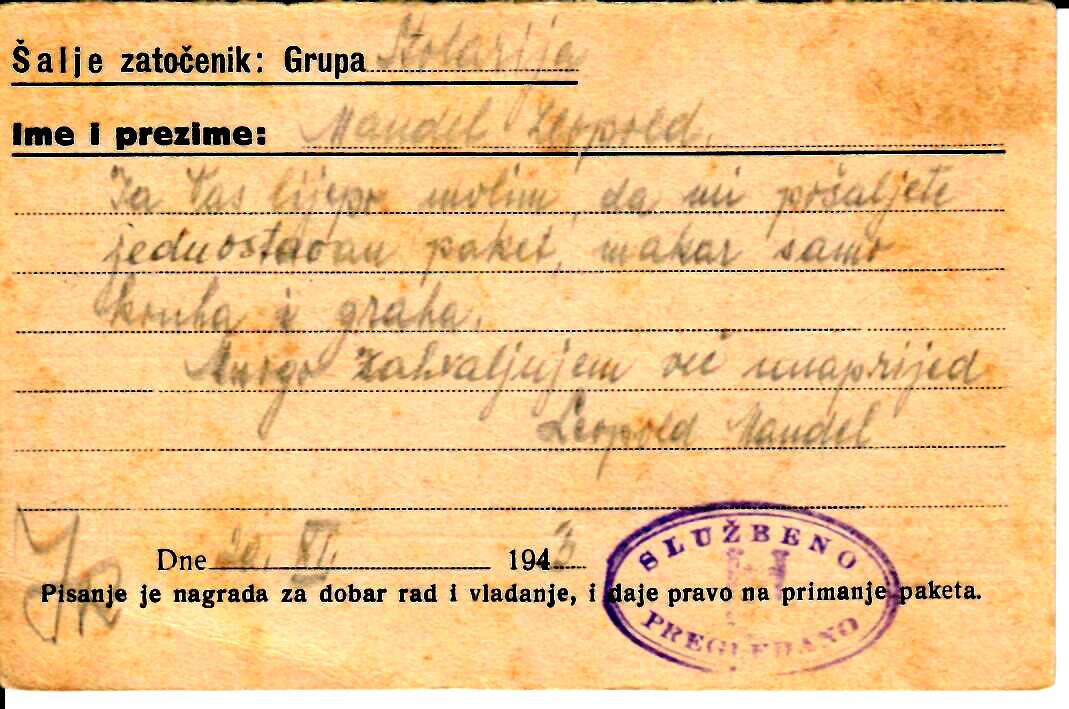 Šalje zatočenik: Grupa Stolarija
Ime i prezime: Mandel Leopold.
Ja Vas lijepo molim, da mi pošaljete
jednostavan paket, makar samo
kruha i graha.
Mnogo zahvaljujem već unaprijed
Leopold Mandel
Dne 20. XI. 1943
SLUŽBENO
PREGLEDANO
Pisanje je nagrada za dobar rad i vladanje, i daje pravo na primanje paketa.